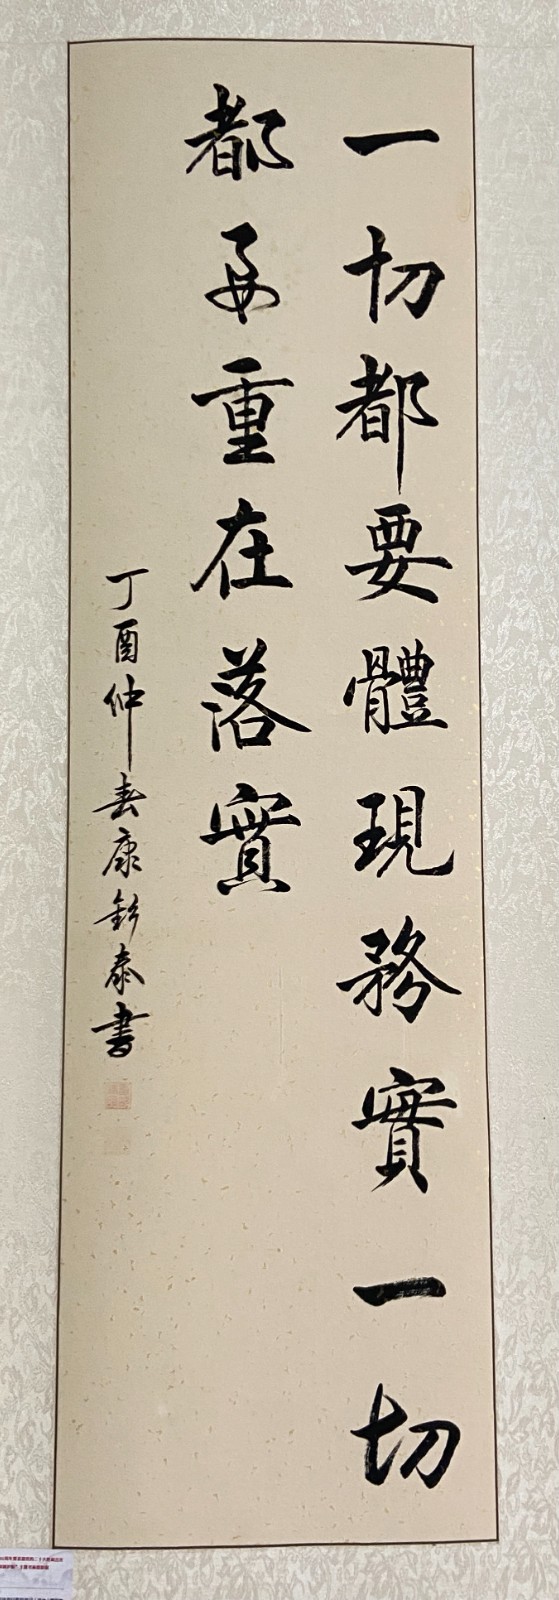 一切都要體現務實一切
都要重在落實
丁酉仲春康钐泰書